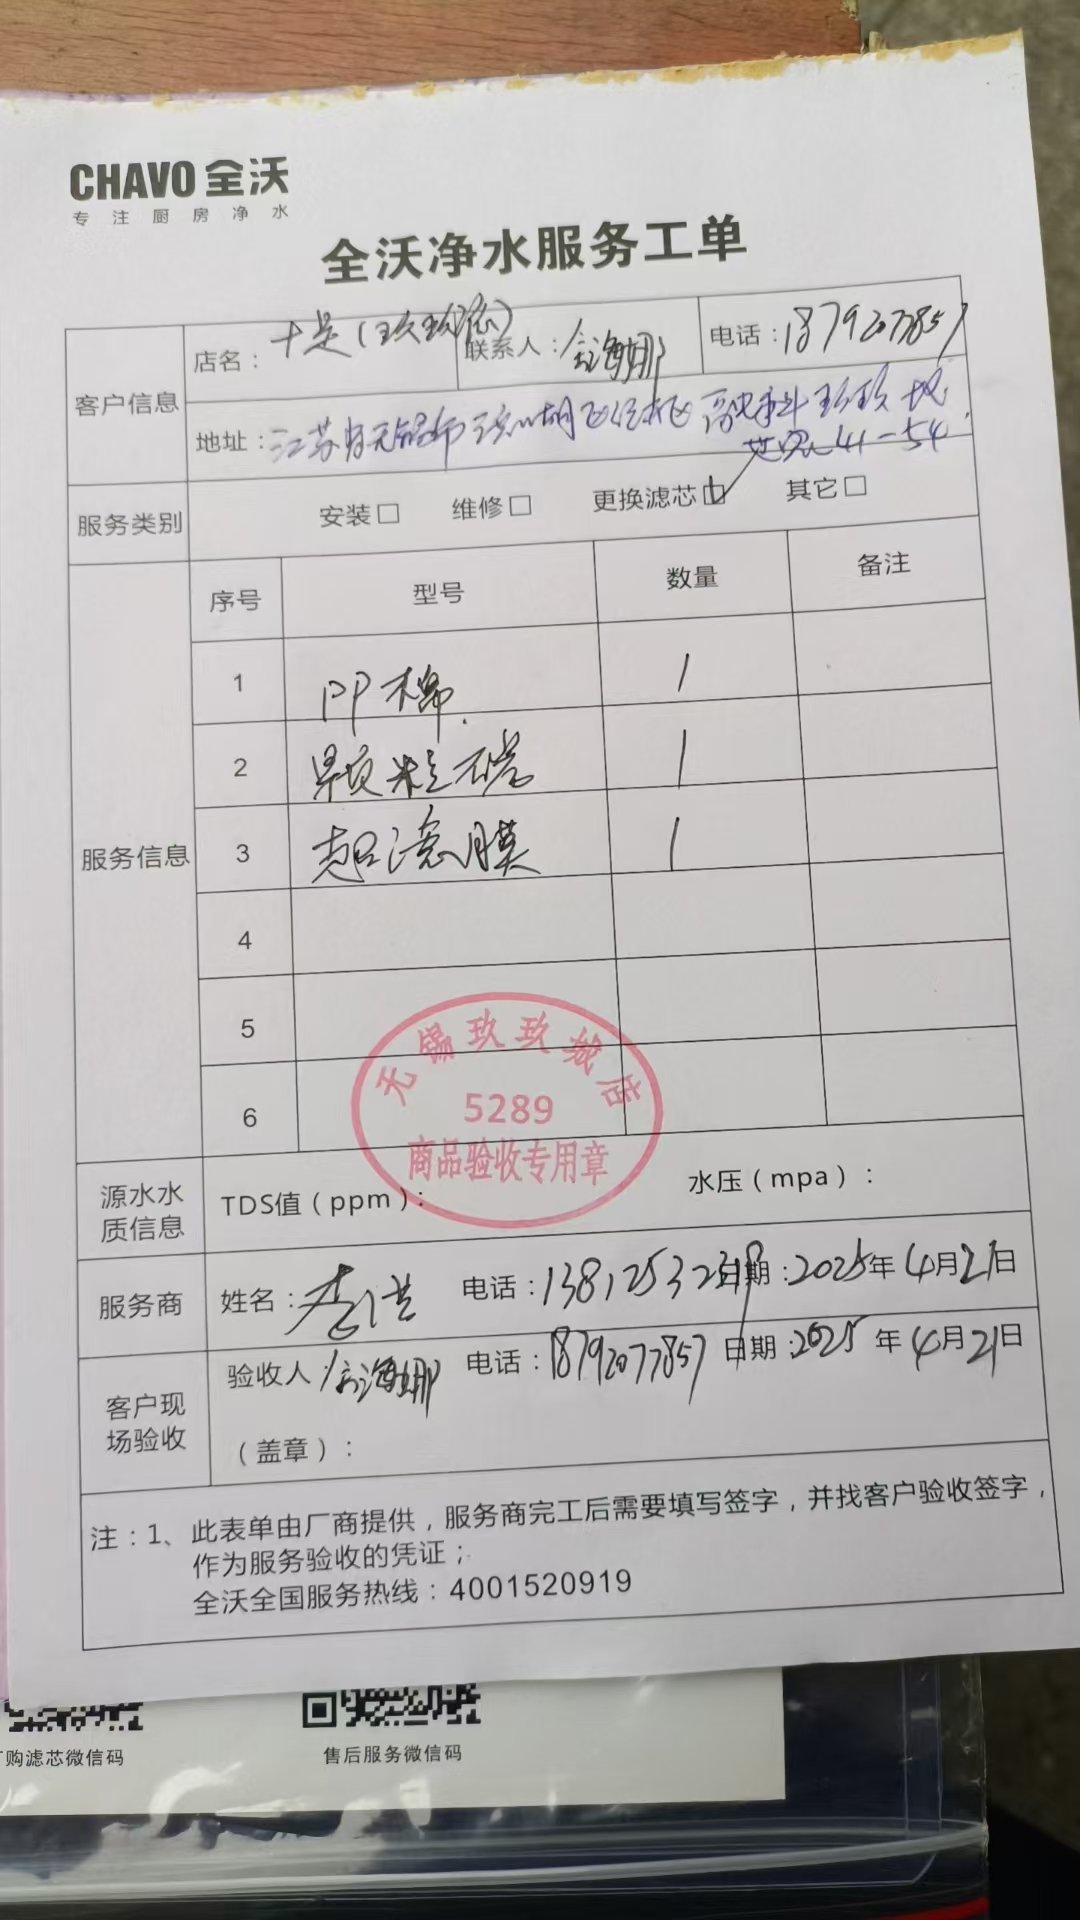 CHAVO 全沃
专注厨房净水
全沃净水服务工单
客户信息
店名：十是(玖玖店)
联系人：海娜
电话：18792077857
地址：江苏省无锡市
41-54
服务类别
安装□ 维修□ 更换滤芯□ 其它□
服务信息
序号 型号 数量 备注
1 PP棉 1
2 颗粒炭 1
3 超滤膜 1
4
5
6
无锡玖玖城店
5289
商品验收专用章
源水水质信息
TDS值（ppm）： 水压（mpa）：
服务商
姓名：李 电话：138125323 日期：2025年4月21日
客户现场验收
验收人：海娜 电话：18792077857 日期：2025年4月21日
（盖章）：
注：1、此表单由厂商提供，服务商完工后需要填写签字，并找客户验收签字，
作为服务验收的凭证；
全沃全国服务热线：4001520919
购滤芯微信码
售后服务微信码